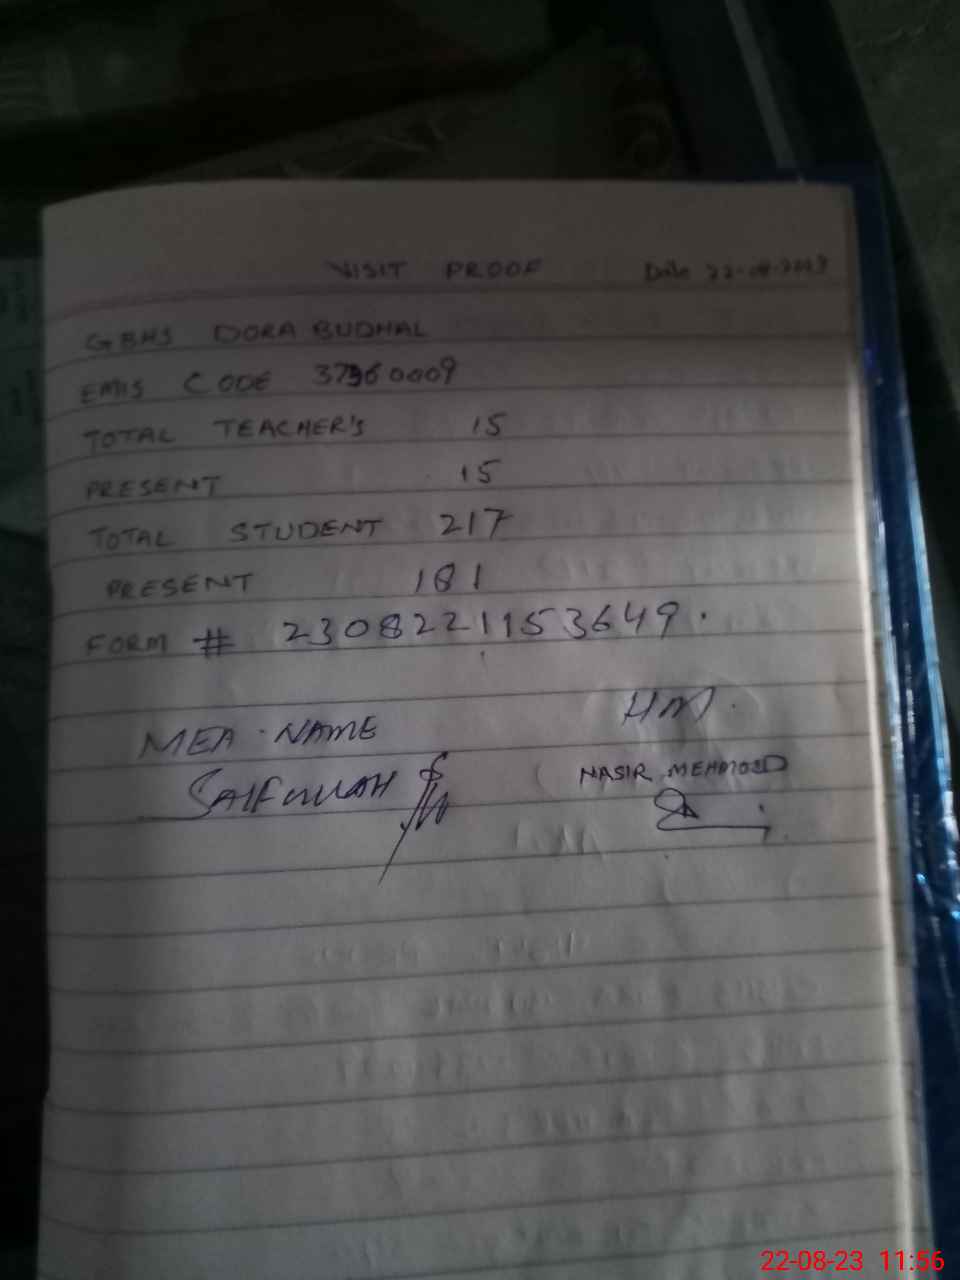 VISIT PROOF Date 22-08-2023
GBHS DORA BUDHAL
EMIS CODE 37360009
TOTAL TEACHER'S 15
PRESENT 15
TOTAL STUDENT 217
PRESENT 181
FORM # 2308221153649.
MEA. NAME HM.
SAIFULLAH NASIR MEHMOOD
22-08-23 11:56